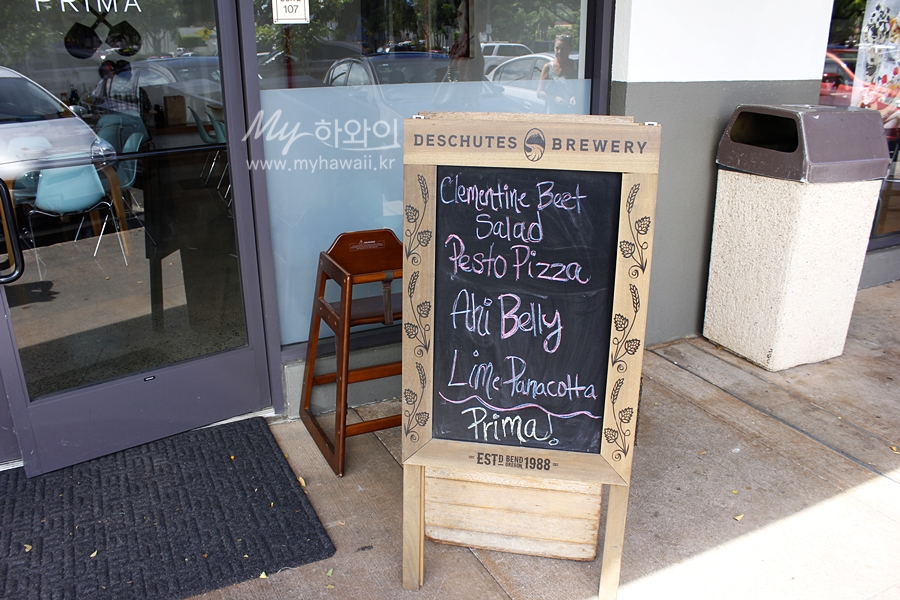 PRIMA
107
My하와이
www.myhawaii.kr
DESCHUTES BREWERY
Clementine Beet
Salad
Pesto Pizza
Ahi Belly
Lime Panacotta
Prima!
ESTD BEND OREGON 1988